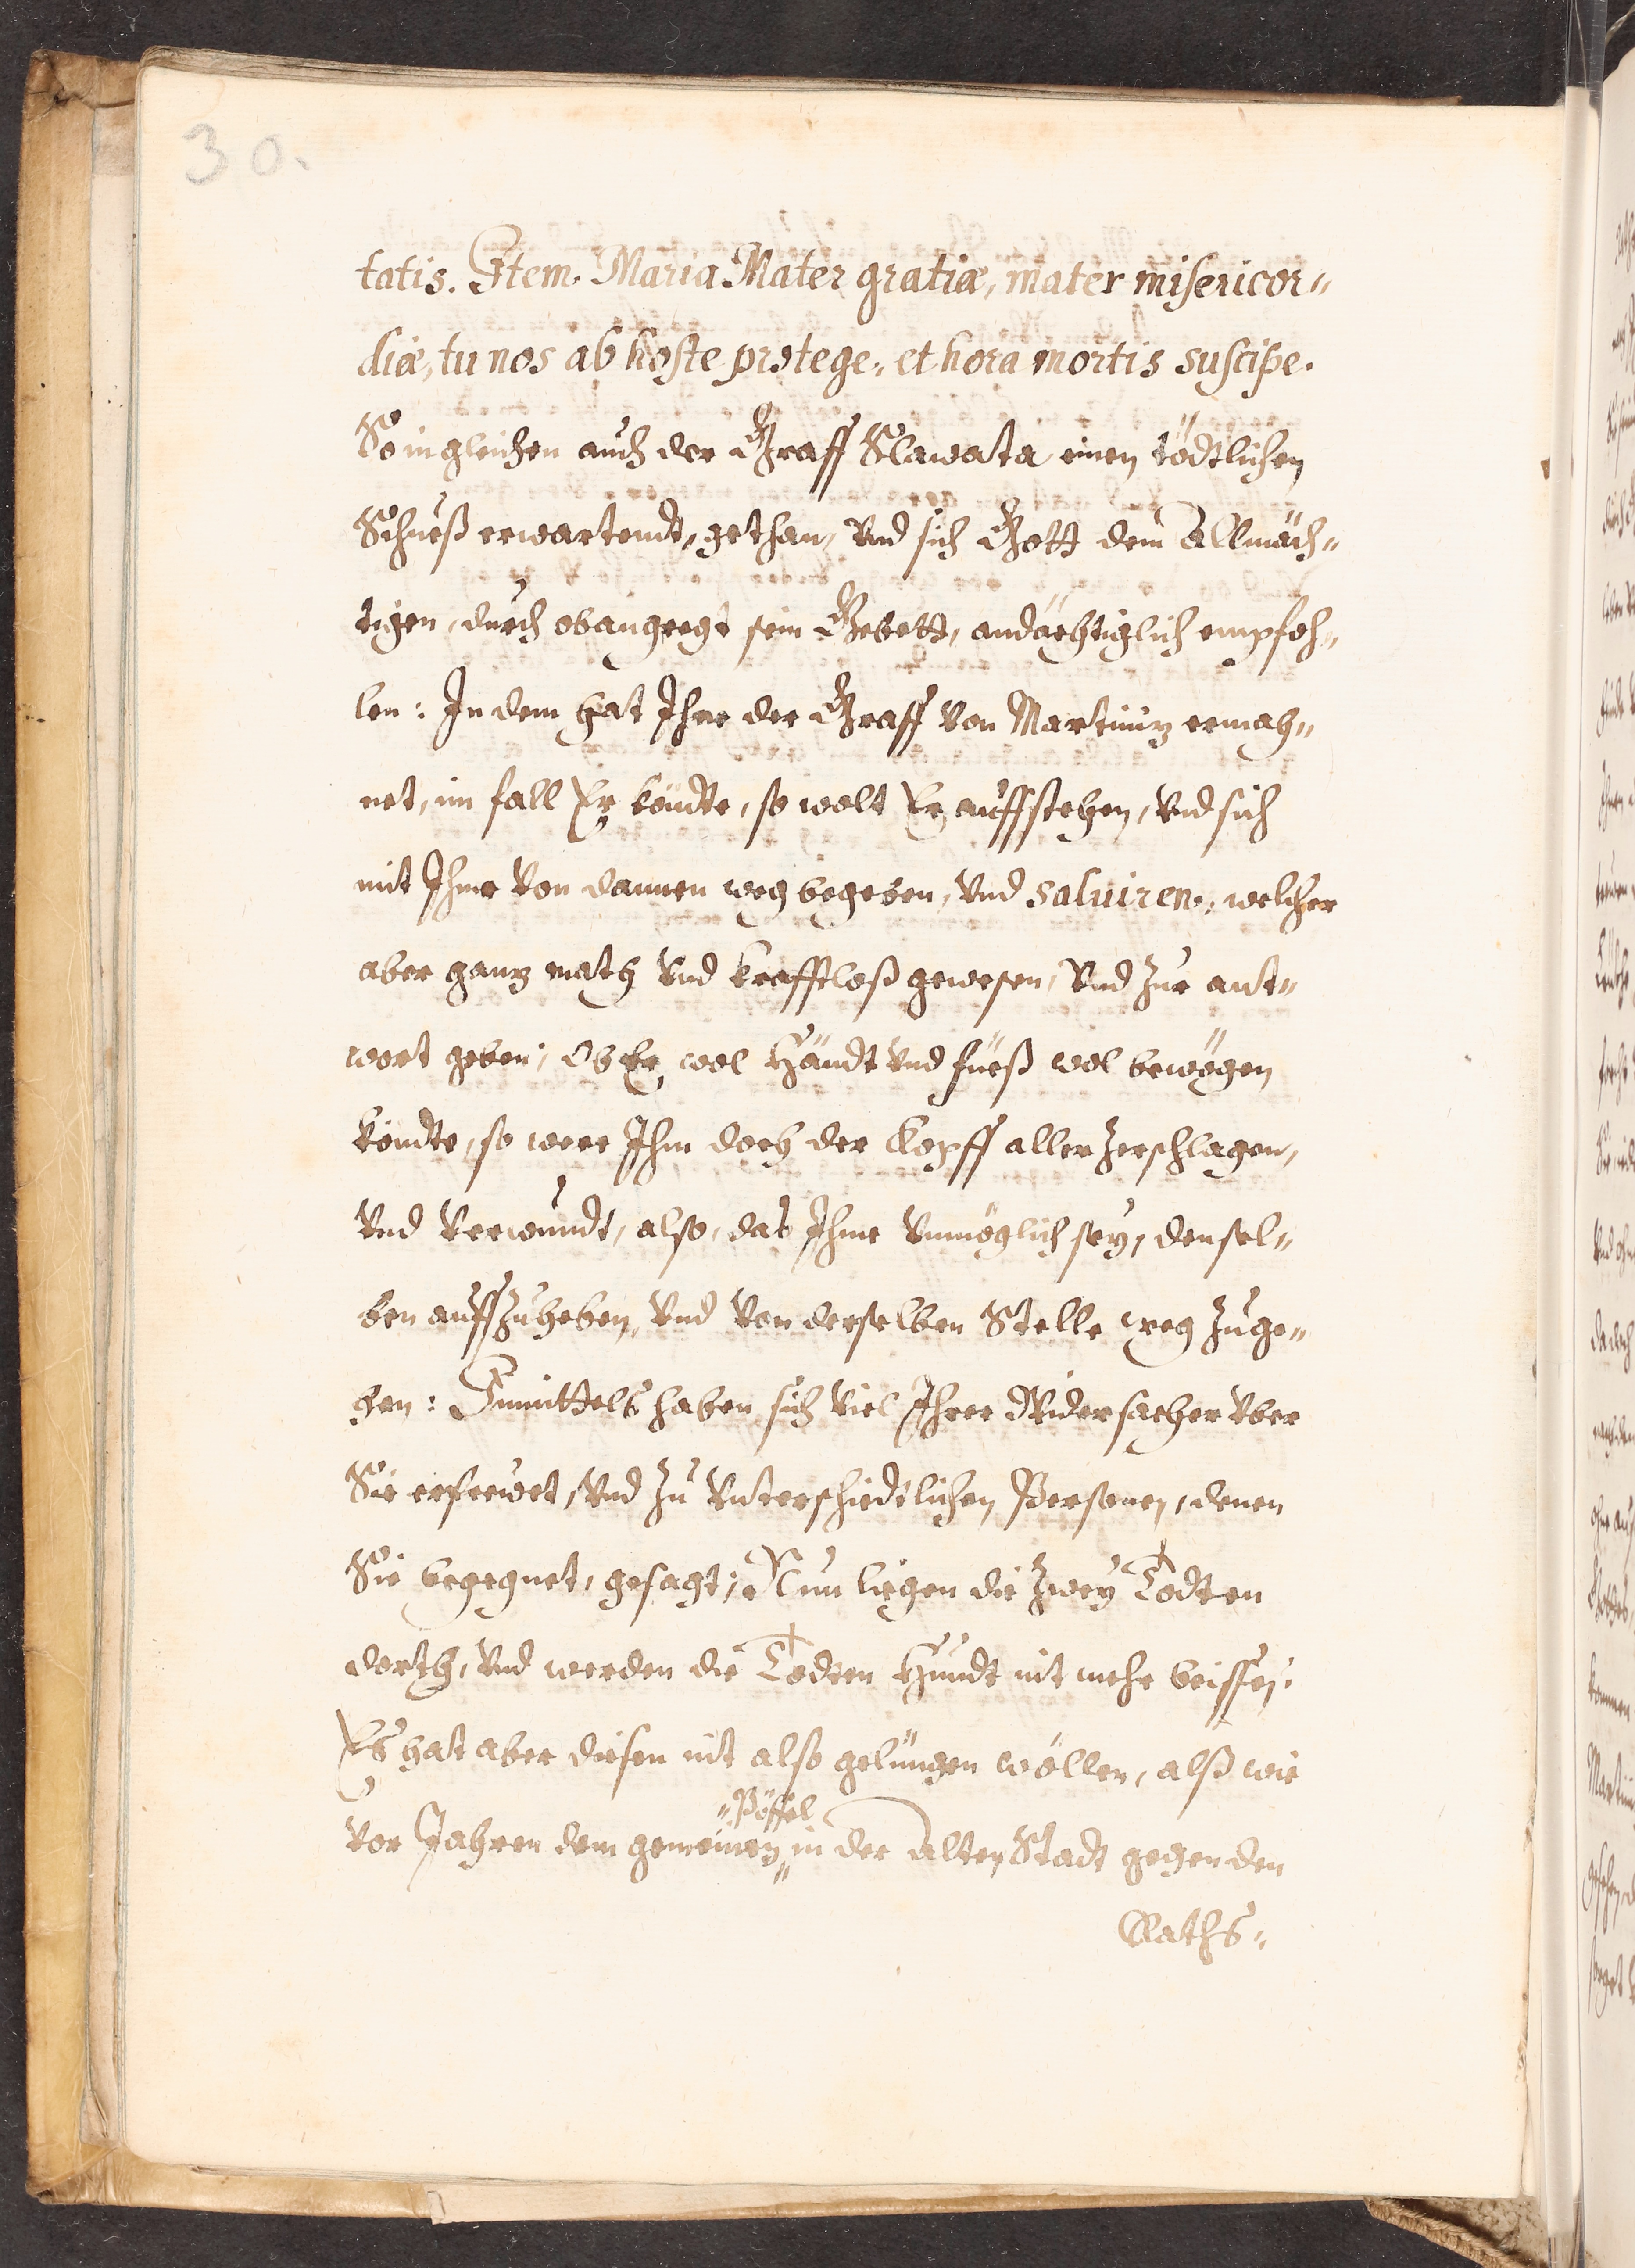 30.
tatis. Item. Maria Mater gratiæ, mater misericor„
diæ, tu nos ab hoste protege, et hora mortis suscipe.
So ingleichen auch der Graff Slawata einen tödtlichen
Schueß erwartendt, gethan, Vnd sich Gott dem Allmäch„
tigen, durch obangeregt sein Gebett, andächtiglich empfoh„
len: In dem hat Ihne der Graff Von Martiniz ermah„
net, im fall Er köndte, so wolt Er auffstehen, Vnd sich
mit Ihme Von dannen weg begeben, Vnd salviren, welcher
aber ganz math Vnd krafftloß gewesen, Vnd zur ant„
wort geben; Ob Er wol Händt Vnd füeß wol bewögen
köndte, so were Ihm doch der Kopff aller zerschlagen,
Vnd Verwundt, also, das Ihme Vnmöglich sey, densel„
ben auffzuheben, Vnd Von derselben Stelle weg zuge„
hen: Immittels haben sich Viel Ihrer Widersacher Vber
Sie erfrewet, Vnd zu Vnterschiedtlichen Personen, denen
Sie begegnet, gesagt; Nun liegen die zwey Todten
dorth, Vnd werden die Todten Hundt nit mehr beissen.
Es hat aber diesen nit also gelüngen wöllen, alß wie
„Pöffel
Vor Jahren dem gemeinen „ in der Alten Stadt gegen den
Raths„